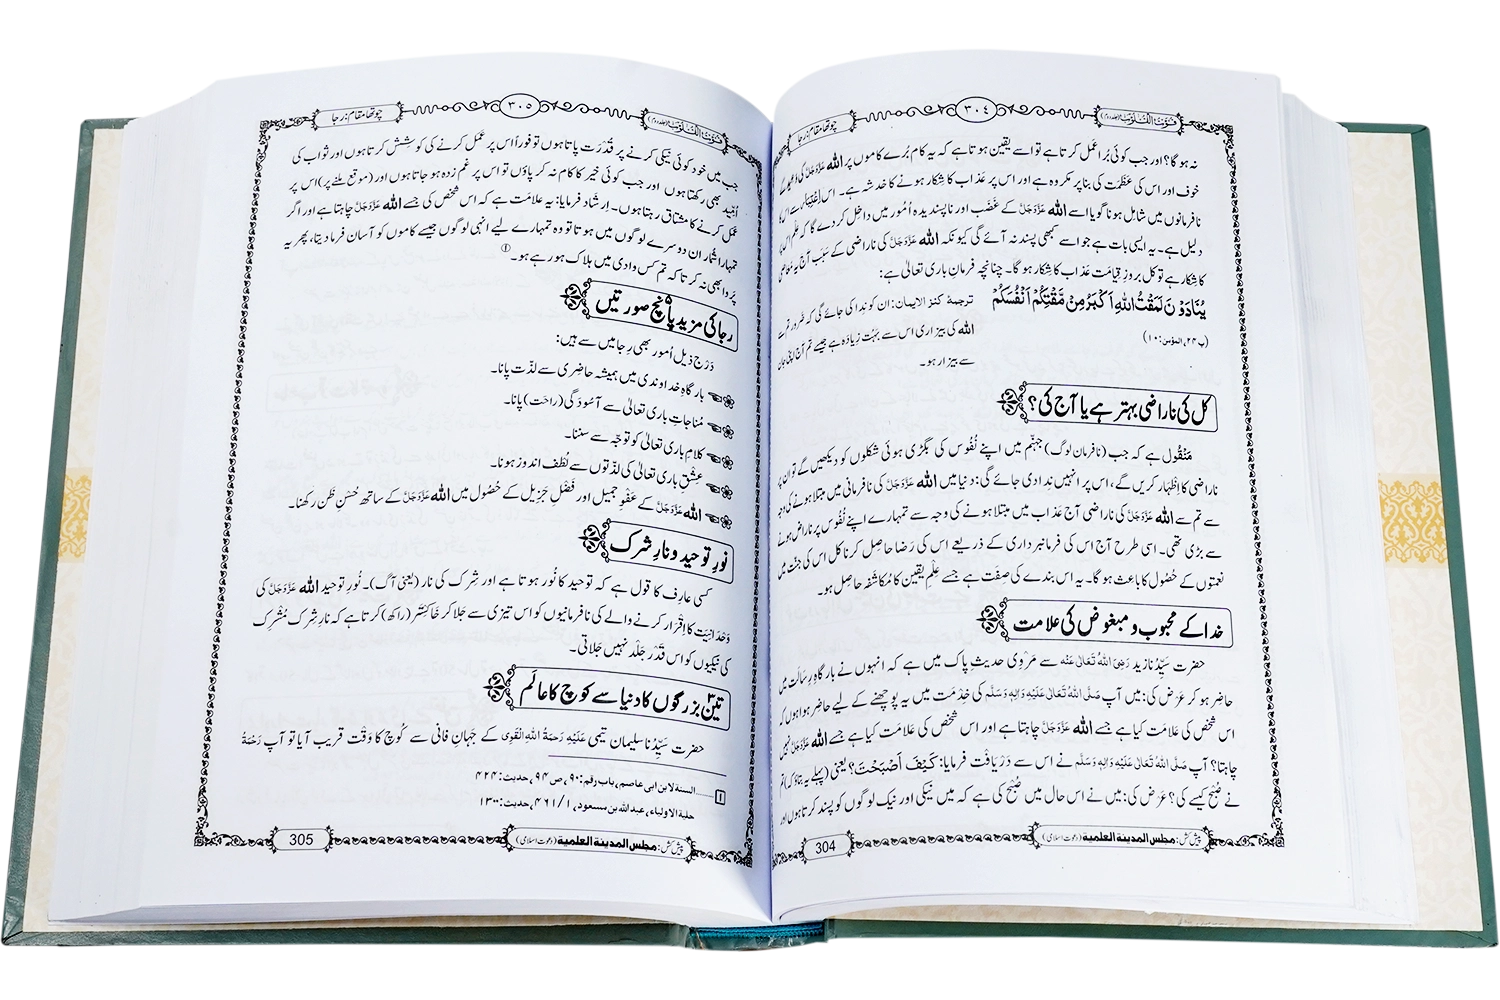 قوت القلوب (جلد دوم)
۳۰٤
چوتھا مقام: رجا
نہ ہو گا؟ اور جب کوئی بُرا عمل کرتا ہے تو اسے یقین ہوتا ہے کہ یہ کام بُرے کاموں پر الله عَزَّوَجَلَّ کی
خوف اور اس کی عَظَمَت کی بنا پر مکروہ ہے اور اس پر عذاب کا شکار ہونے کا خدشہ ہے۔ اس اِعْتِبَار سے اس کا
نافرمانوں میں شامل ہونا گویا اسے الله عَزَّوَجَلَّ کے غَضَب اور ناپسندیدہ اُمُور میں داخِل کر دے گا کہ عِلْم اس کی
دلیل ہے۔ یہ ایسی بات ہے جو اسے کبھی پسند نہ آئے گی کیونکہ الله عَزَّوَجَلَّ کی ناراضی کے سَبَب آج یہ مَعَاصی
کا شِکار ہے تو کل بروزِ قِیامَت عذاب کا شکار ہو گا۔ چنانچہ فرمانِ باری تعالیٰ ہے:
یُنَادَوْنَ لَمَقْتُ اللهِ اَكْبَرُ مِنْ مَّقْتِكُمْ اَنْفُسَكُمْ
(پ ۲۴، المؤمن: ۱۰)
ترجمۂ کنز الایمان: ان کو ندا کی جائے گی کہ ضَرور تم سے
الله کی بیزاری اس سے بَہُت زیادہ ہے جیسے تم آج اپنی جان
سے بیزار ہو۔
کل کی ناراضی بہتر ہے یا آج کی؟
مَنْقُول ہے کہ جب (نافرمان لوگ) جہنّم میں اپنے نُفُوس کی بگڑی ہوئی شکلوں کو دیکھیں گے تو ان پر
ناراضی کا اِظْہار کریں گے، اس پر انہیں نِدا دی جائے گی: دنیا میں الله عَزَّوَجَلَّ کی نافرمانی میں مبتلا ہونے کی وجہ
سے تم سے الله عَزَّوَجَلَّ کی ناراضی آج عذاب میں مبتلا ہونے کی وجہ سے تمہارے اپنے نُفُوس پر ناراض ہونے
سے بڑی تھی۔ اسی طرح آج اس کی فرمانبرداری کے ذریعے اس کی رَضا حاصِل کرنا کل اس کی جنّت میں
نعمتوں کے حُصُول کا باعث ہو گا۔ یہ اس بندے کی صِفَت ہے جسے عِلْمِ یقین کا مُکاشَفَہ حاصِل ہو۔
خدا کے محبوب و مبغوض کی علامت
حضرت سَیِّدُنا زید رَضِیَ اللهُ تَعَالٰی عَنْہ سے مَرْوِی حدیثِ پاک میں ہے کہ انہوں نے بارگاہِ رِسالَت میں
حاضِر ہو کر عَرْض کی: میں آپ صَلَّی اللهُ تَعَالٰی عَلَیْہِ وَاٰلِہٖ وَسَلَّم کی خِدْمَت میں یہ پوچھنے کے لیے حاضر ہوا ہوں کہ
اس شخص کی علامت کیا ہے جسے الله عَزَّوَجَلَّ چاہتا ہے اور اس شخص کی علامت کیا ہے جسے الله عَزَّوَجَلَّ نہیں
چاہتا؟ آپ صَلَّی اللهُ تَعَالٰی عَلَیْہِ وَاٰلِہٖ وَسَلَّم نے اس سے دَرْیافْت فرمایا: كَیْفَ اَصْبَحْتَ؟ یعنی (پہلے یہ بتاؤ کہ) تم
نے صُبْح کیسے کی؟ عَرْض کی: میں نے اس حال میں صُبْح کی ہے کہ میں نیکی اور نیک لوگوں کو پسند کرتا ہوں اور
پیش کش: مجلس المدینۃ العلمیۃ (دعوتِ اسلامی)
304
قوت القلوب (جلد دوم)
۳۰۵
چوتھا مقام: رجا
جب میں خود کوئی نیکی کرنے پر قُدْرَت پاتا ہوں تو فوراً اس پر عَمَل کرنے کی کوشش کرتا ہوں اور ثواب کی
اُمِّید بھی رکھتا ہوں اور جب کوئی خَیر کا کام نہ کر پاؤں تو اس پر غم زدہ ہو جاتا ہوں اور (موقع ملنے پر) اس پر
عَمَل کرنے کا مشتاق رہتا ہوں۔ اِرشاد فرمایا: یہ علامت ہے کہ اس شخص کی جسے الله عَزَّوَجَلَّ چاہتا ہے اور اگر
تمہارا شُمار ان دوسرے لوگوں میں ہوتا تو وہ تمہارے لیے انہی لوگوں جیسے کاموں کو آسان فرما دیتا، پھر یہ
پَروا بھی نہ کرتا کہ تم کس وادی میں ہلاک ہو رہے ہو۔ (۱)
رجا کی مزید پانچ ۵ صورتیں
دَرْج ذیل اُمور بھی رِجا میں سے ہیں:
بارگاہِ خداوندی میں ہمیشہ حاضِری سے لذّت پانا۔
مُناجاتِ باری تعالیٰ سے آسُودَگی (راحَت) پانا۔
کلامِ باری تعالیٰ کو توجّہ سے سننا۔
عِشْقِ باری تعالیٰ کی لذّتوں سے لُطْف اندوز ہونا۔
الله عَزَّوَجَلَّ کے عَفْوِ جمیل اور فَضْلِ جَزِیل کے حُصُول میں الله عَزَّوَجَلَّ کے ساتھ حُسْنِ ظَن رکھنا۔
نُورِ توحید و نارِ شرک
کسی عارِف کا قول ہے کہ توحید کا نُور ہوتا ہے اور شِرک کی نار (یعنی آگ)۔ نُورِ توحید الله عَزَّوَجَلَّ کی
وَحْدَانِیَّت کا اِقْرَار کرنے والے کی نافرمانیوں کو اس تیزی سے جَلا کر خاکِسْتَر (راکھ) کرتا ہے کہ نارِ شِرک مُشْرِک
کی نیکیوں کو اس قَدَر جَلْد نہیں جَلاتی۔
تین ۳ بزرگوں کا دنیا سے کوچ کا عالَم
حضرت سَیِّدُنا سلیمان تیمی عَلَیْہِ رَحْمَۃُ اللهِ الْقَوِی کے جَہانِ فانی سے کُوچ کا وَقْت قریب آیا تو آپ رَحْمَۃُ
۱ ۔۔۔۔۔ السنة لابن ابی عاصم، باب رقم: ۹۰، ص ۹۴، حدیث: ۴۲۴
حلیة الاولیاء، عبدالله بن مسعود، ۱/ ۴۶۱، حدیث: ۱۳۰۰
پیش کش: مجلس المدینۃ العلمیۃ (دعوتِ اسلامی)
305